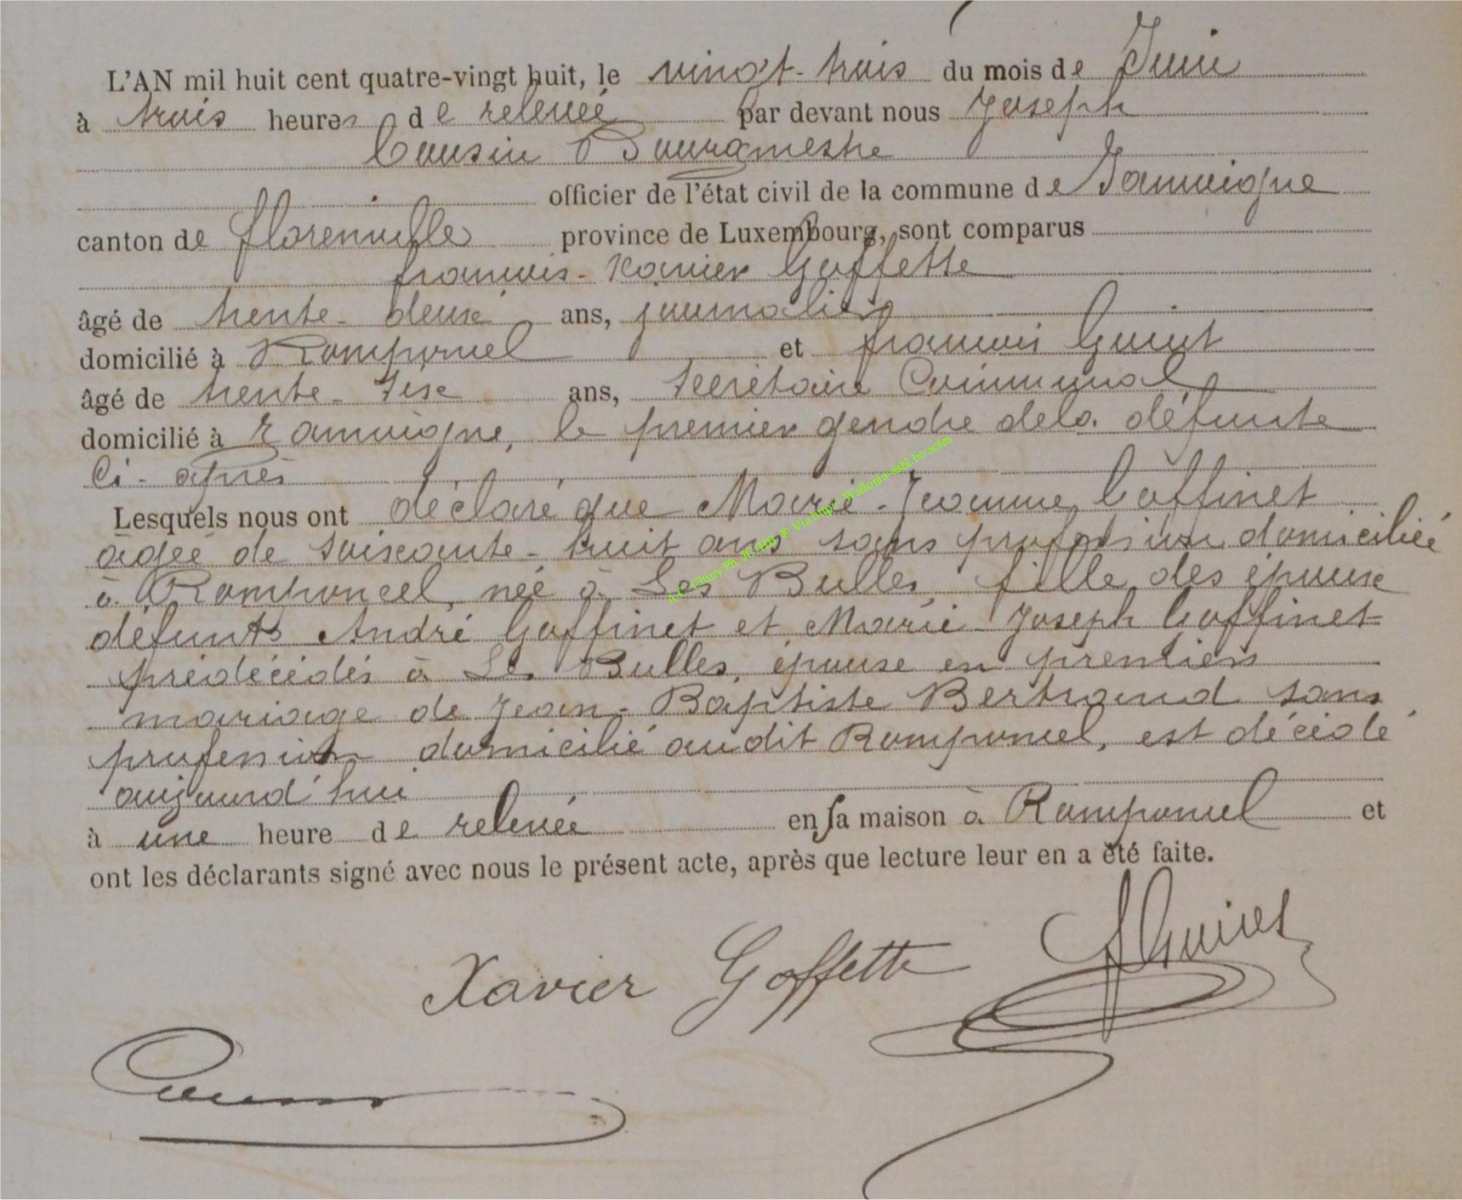 L'AN mil huit cent quatre-vingt huit, le vingt-trois du mois de Juin
à trois heures de relevée par devant nous Joseph
Cousin Bourgmestre
officier de l'état civil de la commune de Jamoigne
canton de florenville province de Luxembourg, sont comparus
francois-Xavier Goffette
âgé de trente-deux ans, journalier
domicilié à Romponcel et francois Guiot
âgé de trente-six ans, Secrétaire Communal
domicilié à Jamoigne, le premier gendre de la défunte
Ci-après
Lesquels nous ont déclaré que Marie-Jeanne Goffinet
âgée de soixante-huit ans sans profession domiciliée
à Romponcel, née à Les Bulles, fille des épouse
défunts André Goffinet et Marie-Joseph Goffinet
prédécédés à Les Bulles, épouse en premiers
mariage de Jean-Baptiste Bertrand sans
profession domicilié audit Romponcel, est décédé
aujourd'hui
à une heure de relevée en sa maison à Romponcel et
ont les déclarants signé avec nous le présent acte, après que lecture leur en a été faite.
Xavier Goffette
Cousin